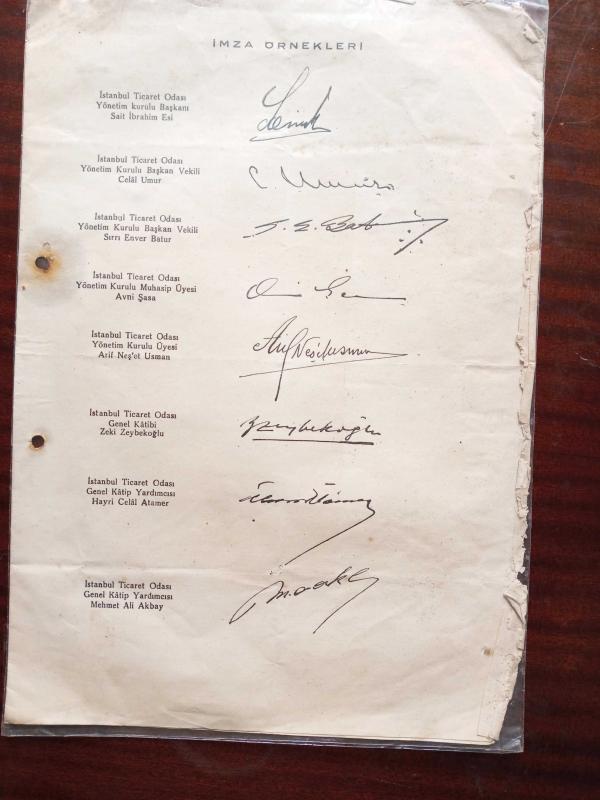 İMZA ÖRNEKLERİ
İstanbul Ticaret Odası
Yönetim kurulu Başkanı
Sait İbrahim Esi
İstanbul Ticaret Odası
Yönetim Kurulu Başkan Vekili
Celâl Umur
C. Umur
İstanbul Ticaret Odası
Yönetim Kurulu Başkan Vekili
Sırrı Enver Batur
S. E. Batur
İstanbul Ticaret Odası
Yönetim Kurulu Muhasip Üyesi
Avni Şasa
İstanbul Ticaret Odası
Yönetim Kurulu Üyesi
Arif Neş'et Usman
Arif Neş'etusman
İstanbul Ticaret Odası
Genel Kâtibi
Zeki Zeybekoğlu
Zeybekoğlu
İstanbul Ticaret Odası
Genel Kâtip Yardımcısı
Hayri Celâl Atamer
İstanbul Ticaret Odası
Genel Kâtip Yardımcısı
Mehmet Ali Akbay